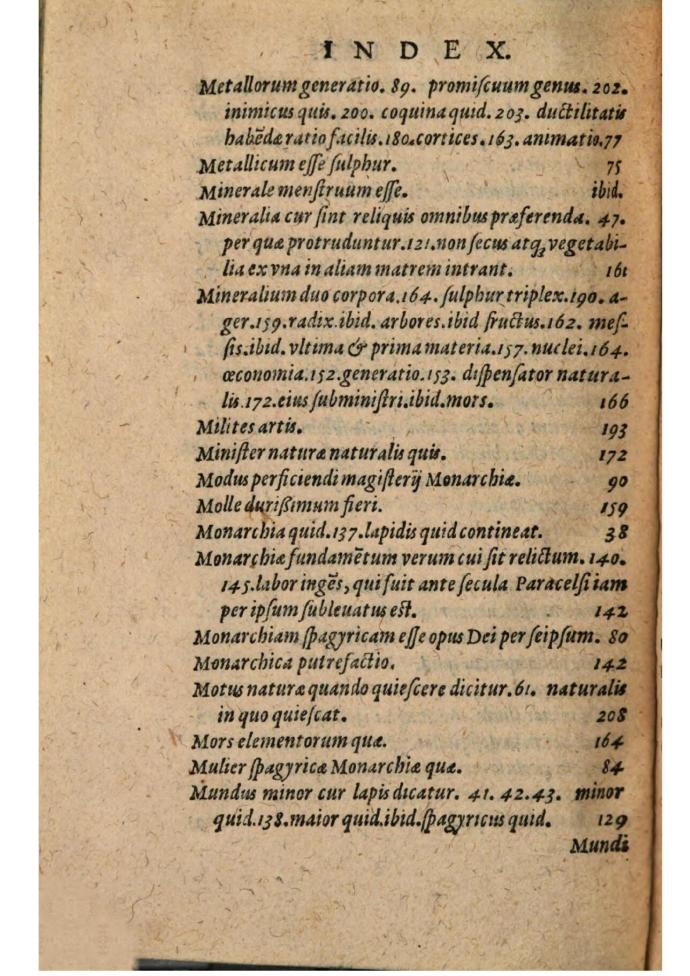 INDEX.
Metallorum generatio. 89. promiſcuum genus. 202.
inimicus quis. 200. coquina quid. 203. ductilitatis
habẽdæ ratio facilis. 180. cortices. 163. animatio. 77
Metallicum eſſe ſulphur. 75
Minerale menſtruum eſſe. ibid.
Mineralia cur ſint reliquis omnibus præferenda. 47.
per quæ protruduntur. 121. non ſecus atq; vegetabi-
lia ex vna in aliam matrem intrant. 161
Mineralium duo corpora. 164. ſulphur triplex. 190. a-
ger. 159. radix. ibid. arbores. ibid fructus. 162. meſ-
ſis. ibid. vltima & prima materia. 157. nuclei. 164.
œconomia. 152. generatio. 153. diſpenſator natura-
lis. 172. eius ſubminiſtri. ibid. mors. 166
Milites artis. 193
Miniſter naturæ naturalis quis. 172
Modus perficiendi magiſterij Monarchiæ. 90
Molle durißimum fieri. 159
Monarchia quid. 137. lapidis quid contineat. 38
Monarchiæ fundamẽtum verum cui ſit relictum. 140.
145. labor ingẽs, qui fuit ante ſecula Paracelſi iam
per ipſum ſubleuatus eſt. 142
Monarchiam ſpagyricam eſſe opus Dei per ſeipſum. 80
Monarchica putrefactio. 142
Motus naturæ quando quieſcere dicitur. 61. naturalis
in quo quieſcat. 208
Mors elementorum quæ. 164
Mulier ſpagyricæ Monarchiæ quæ. 84
Mundus minor cur lapis dicatur. 41. 42. 43. minor
quid. 138. maior quid. ibid. ſpagyricus quid. 129
Mundi